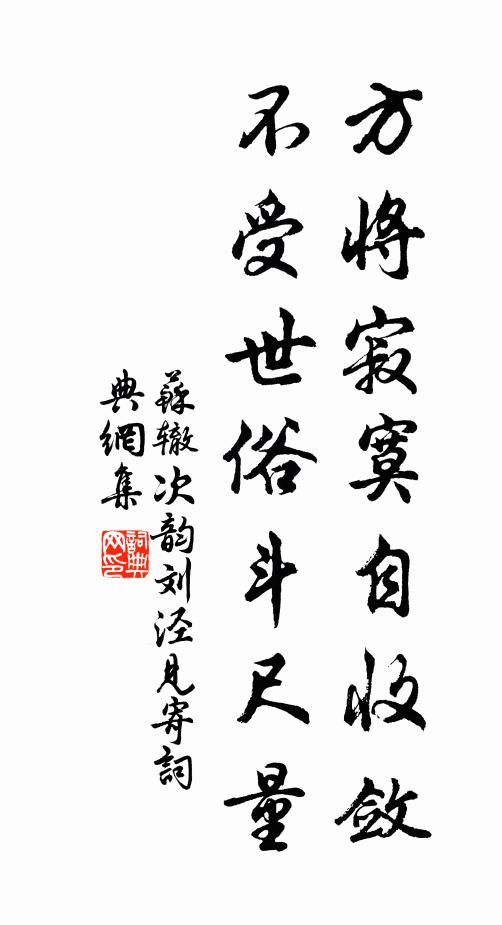 方將寂寞自收斂
不受世俗斗尺量
蘇辙次韵刘泾見寄詞
典網集
詞典网印